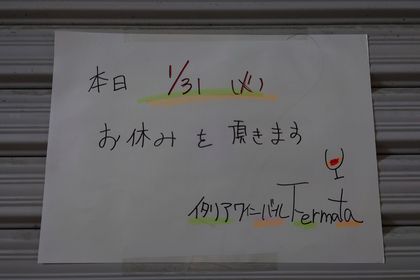 本日 1/31 (火)
お休みを頂きます
イタリアワインバール Fermata